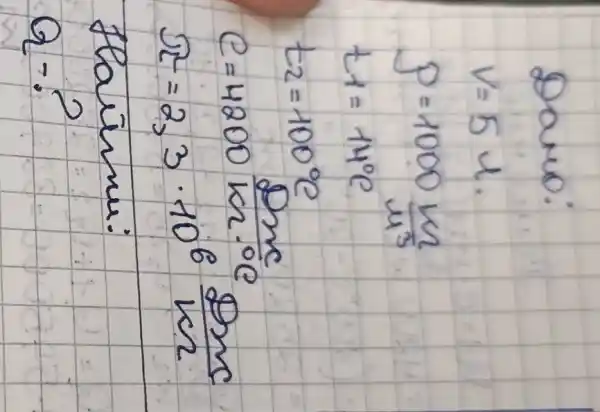 Дано:
V = 5 л.
ρ = 1000 кг/м³
t1 = 14°C
t2 = 100°C
C = 4200 Дж/кг·°C
π = 2,3 · 10⁶ Дж/кг
Найти:
Q - ?